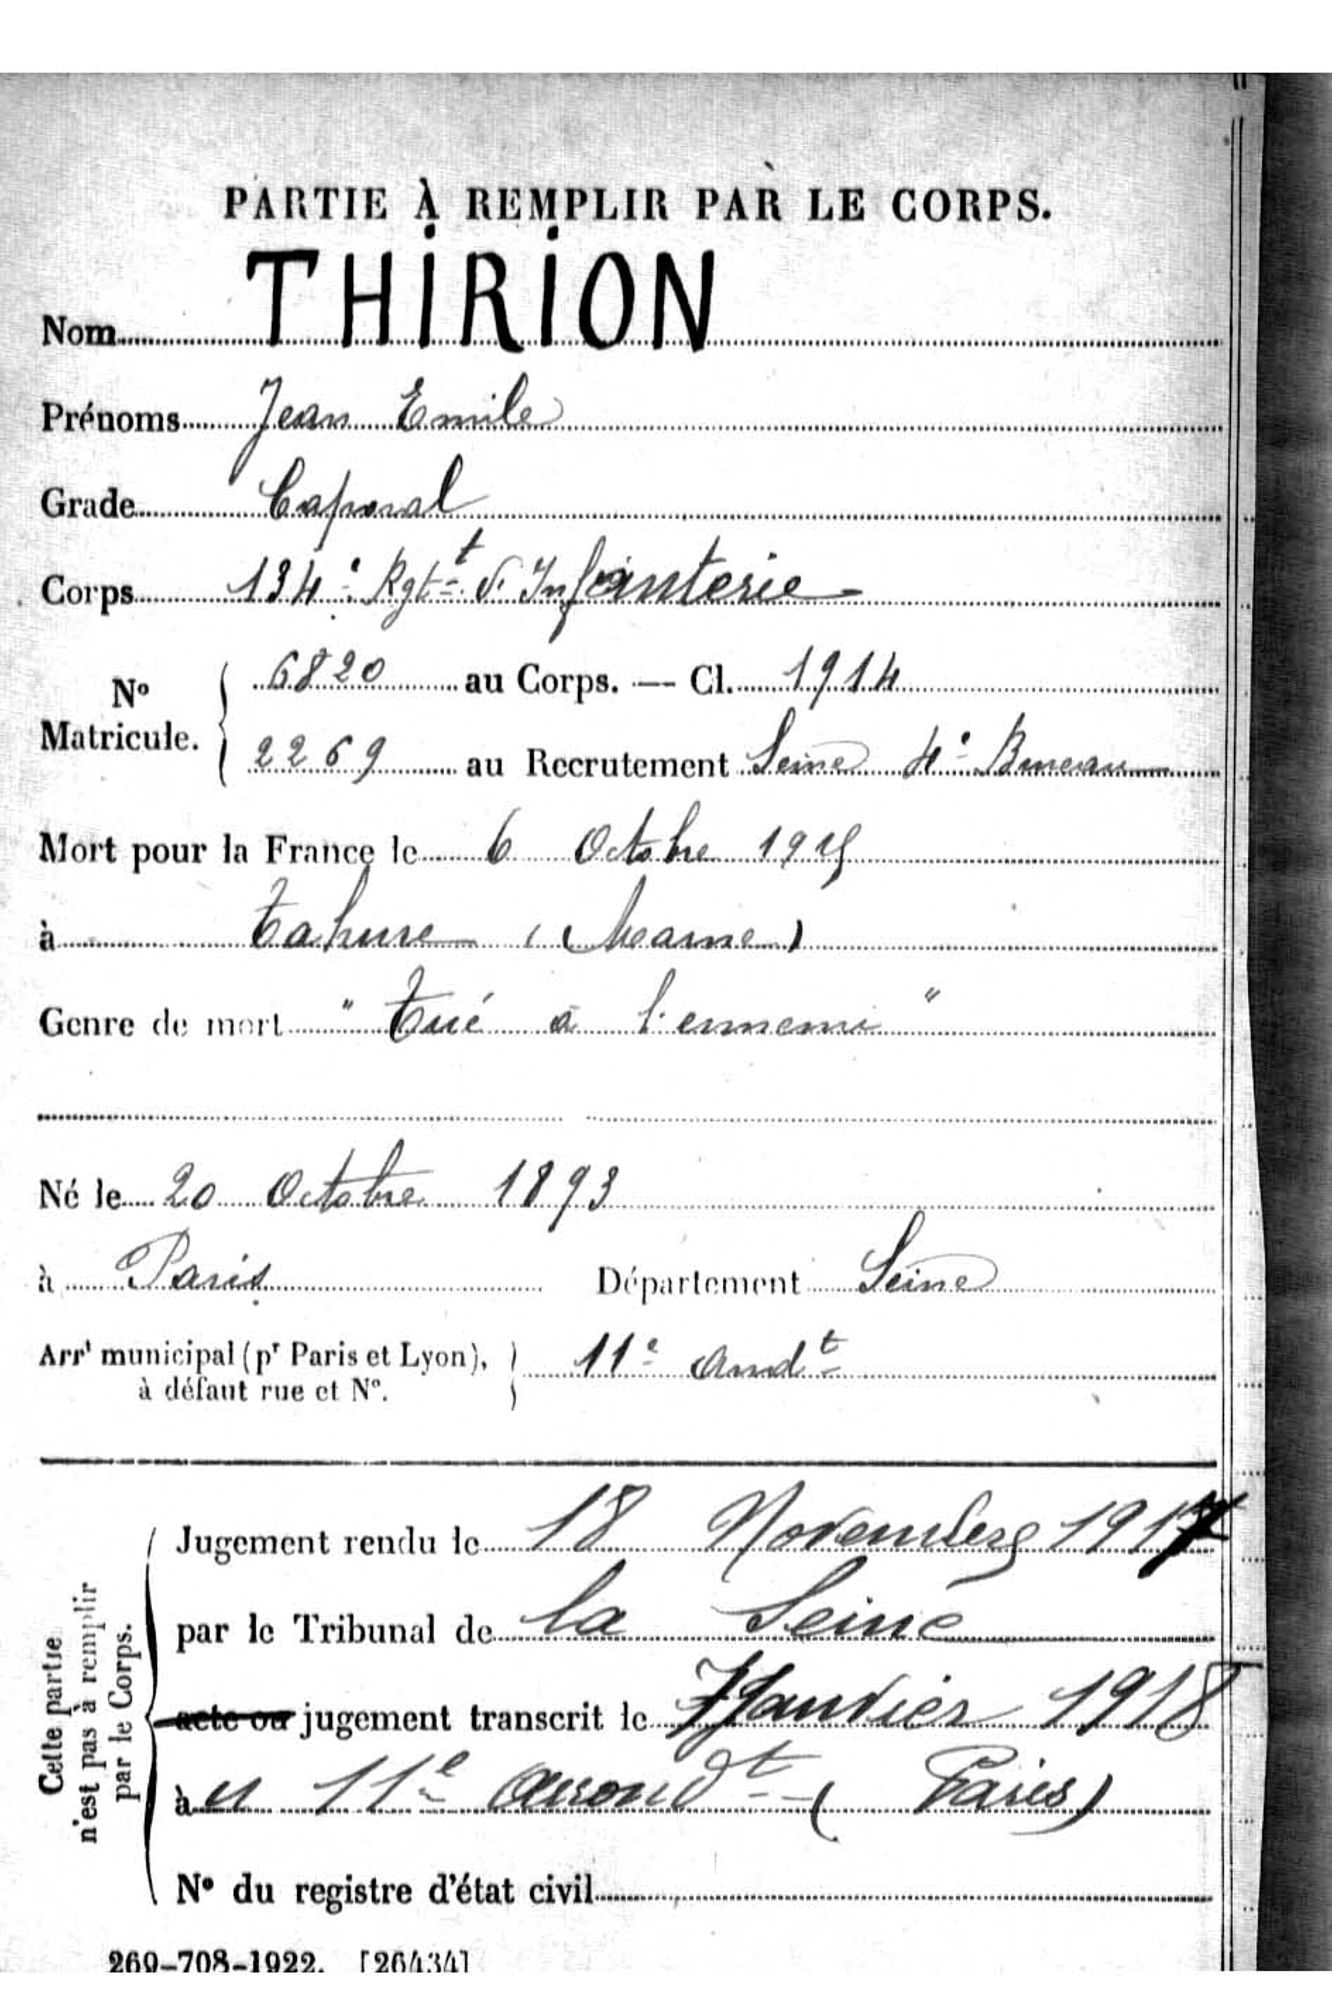 PARTIE À REMPLIR PAR LE CORPS.
Nom THIRION
Prénoms Jean Emile
Grade Caporal
Corps 134e Rgt d'Infanterie
No Matricule. 6820 au Corps. — Cl. 1914
2269 au Recrutement Seine 4e Bureau
Mort pour la France le 6 Octobre 1915
à Tahure (Marne)
Genre de mort "Tué à l'ennemi"
Né le 20 Octobre 1893
à Paris Département Seine
Arrt municipal (pr Paris et Lyon), 11e Arrdt
à défaut rue et No.
Cette partie n'est pas à remplir par le Corps.
Jugement rendu le 18 Novembre 1917
par le Tribunal de la Seine
acte ou jugement transcrit le 7 Janvier 1918
à u 11e arrondt (Paris)
No du registre d'état civil
269-708-1922. [26434]